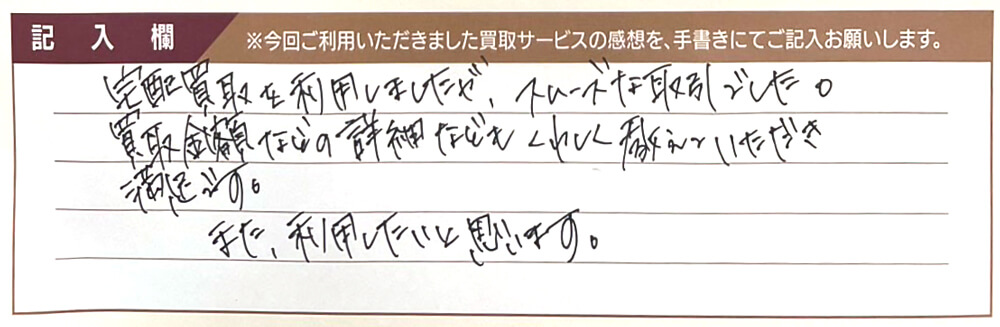 記入欄
※今回ご利用いただきました買取サービスの感想を、手書きにてご記入お願いします。
宅配買取を利用しましたが、スムーズな取引でした。
買取金額などの詳細などもくわしく教えていただき
満足です。
また、利用したいと思います。